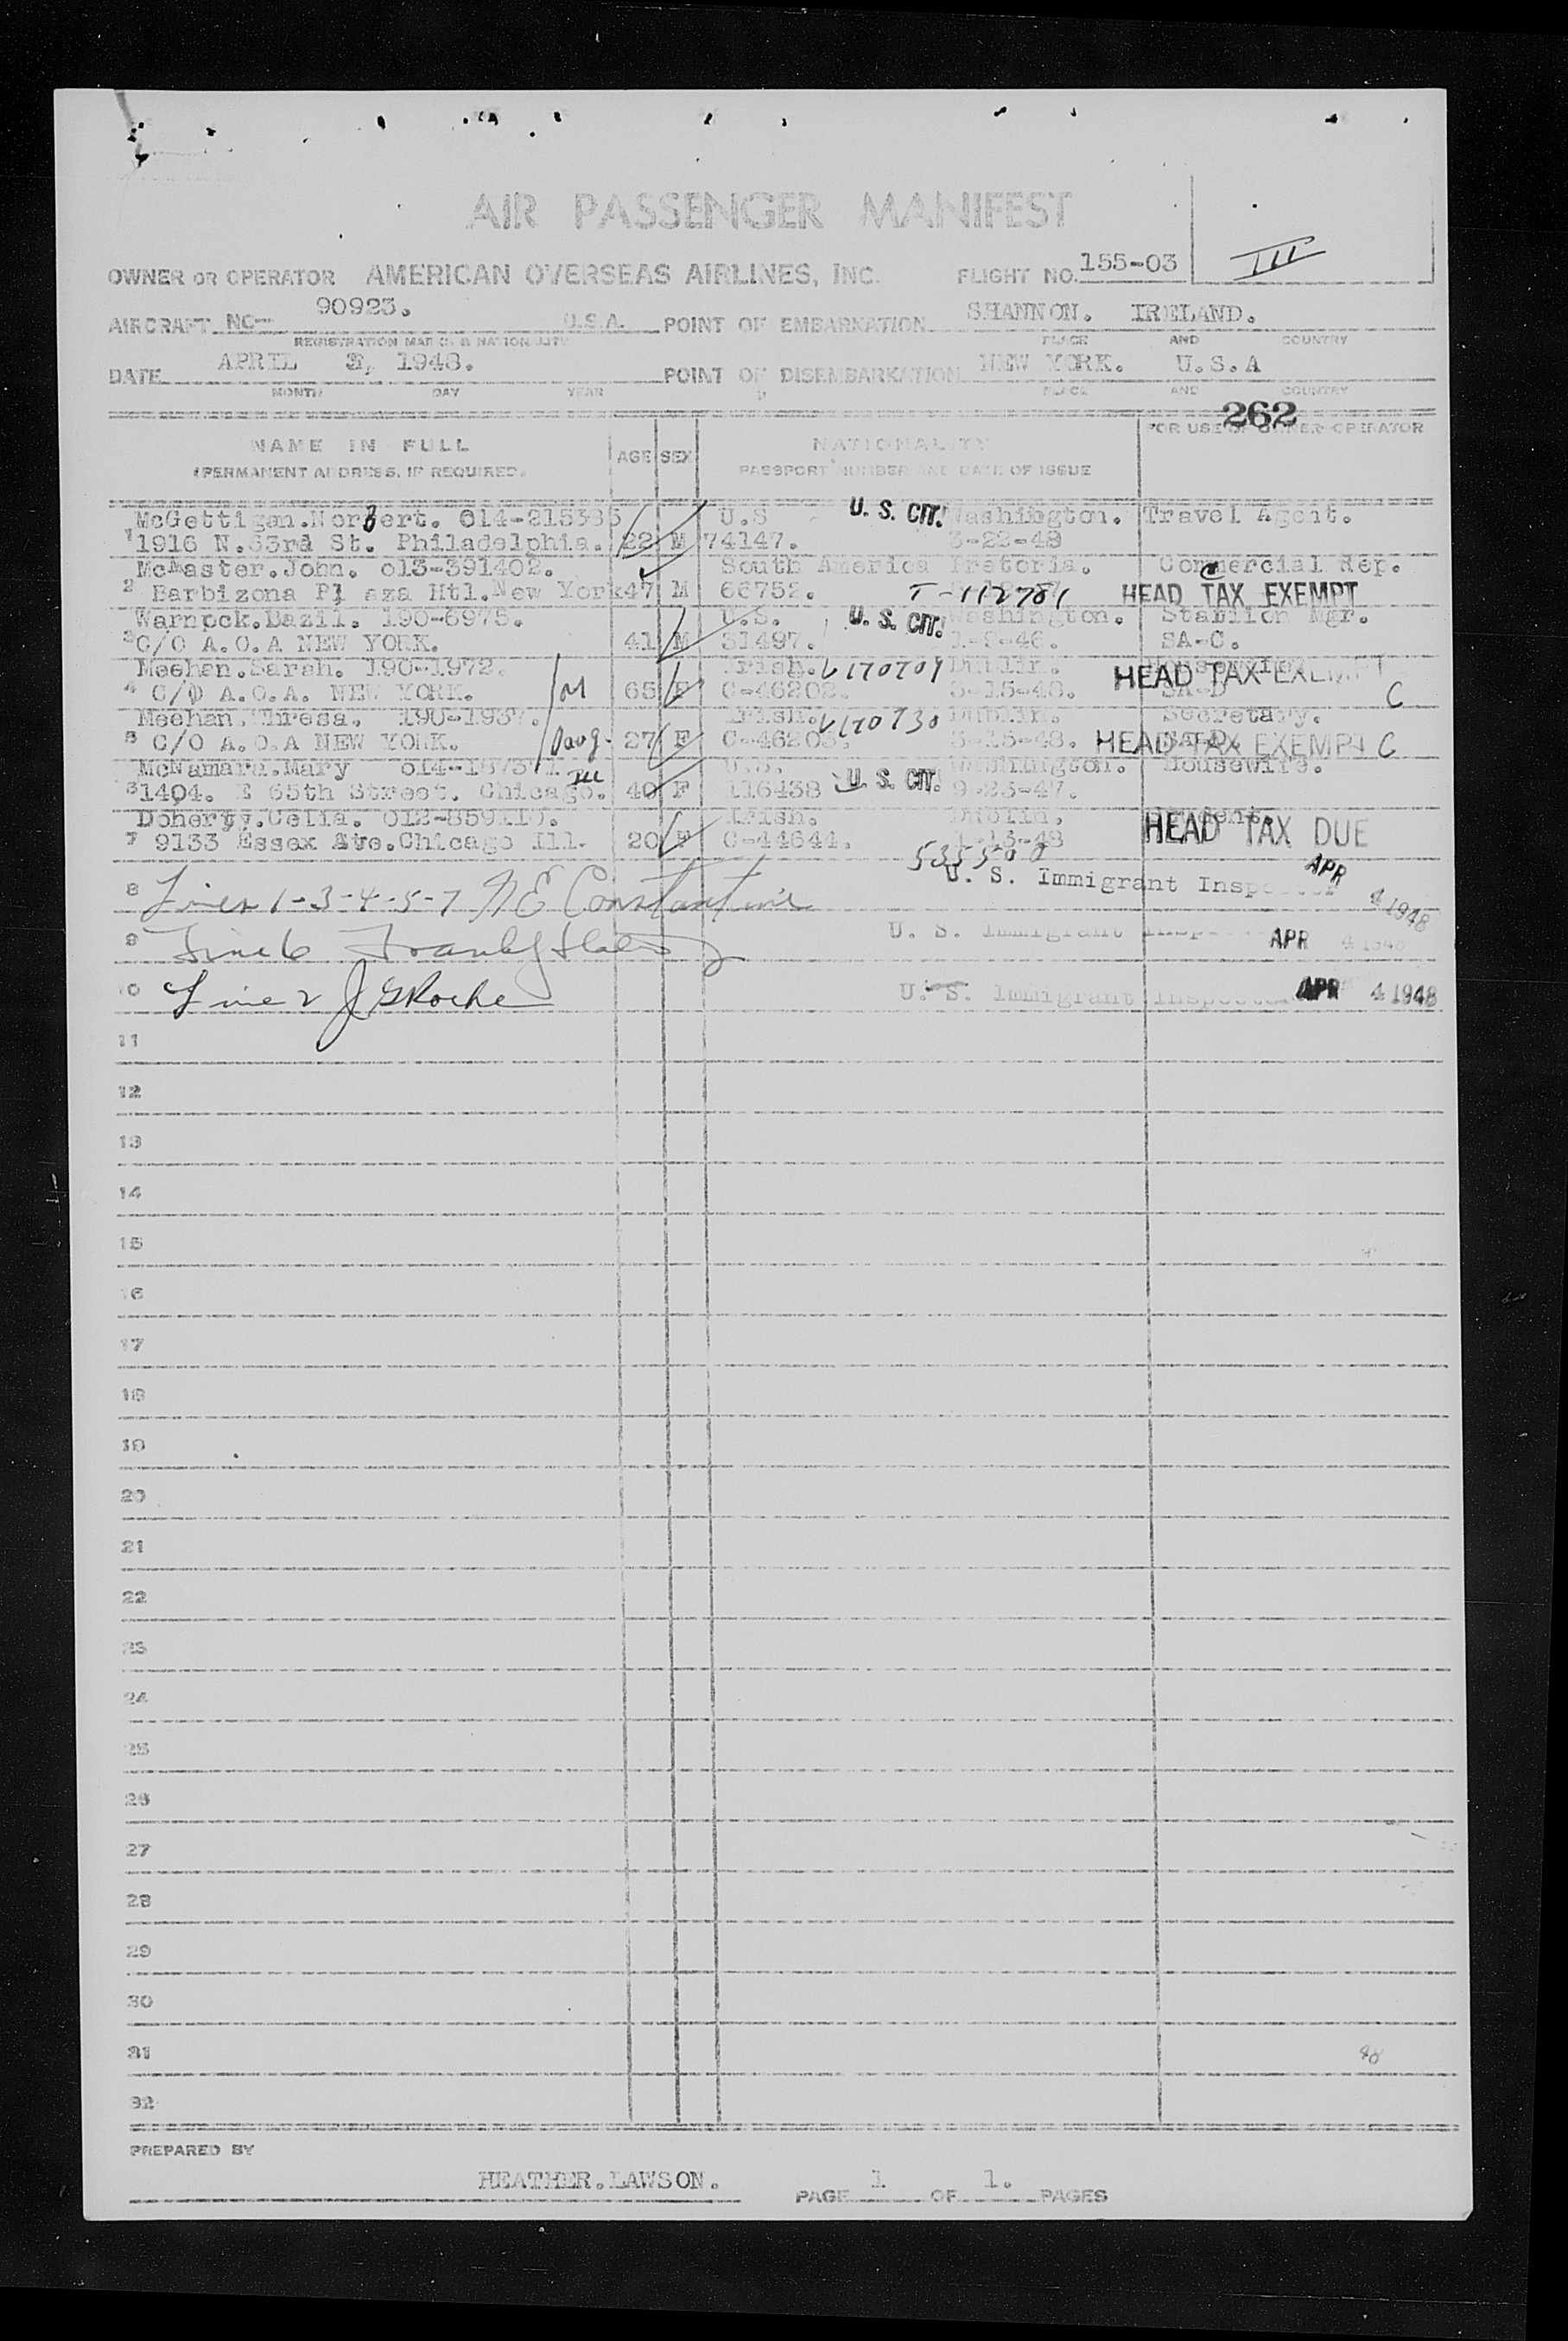 AIR PASSENGER MANIFEST
OWNER OR OPERATOR AMERICAN OVERSEAS AIRLINES, INC. FLIGHT NO. 155-03 III
AIRCRAFT NC- 90923. U.S.A. POINT OF EMBARKATION SHANNON. IRELAND.
REGISTRATION MARKS & NATIONALITY PLACE AND COUNTRY
DATE APRIL 3, 1948. POINT OF DISEMBARKATION NEW YORK. U.S.A
MONTH DAY YEAR PLACE AND COUNTRY
262
NAME IN FULL AGE SEX NATIONALITY FOR USE OF OWNER-OPERATOR
(PERMANENT ADDRESS, IF REQUIRED) PASSPORT NUMBER AND DATE OF ISSUE
McGettigan.Norbert. 014-215385 U.S U. S. CIT. Washington. Travel Agent.
1 1916 N.63rd St. Philadelphia. 22 M 74147. 3-22-48
McMaster.John. o13-391402. South America Pretoria. Commercial Rep.
2 Barbizona Pl aza Htl.New York 47 M 66752. T-112781 HEAD TAX EXEMPT
Warnock.Bazil. 190-6975. U.S. U. S. CIT. Washington. Station Mgr.
3 C/O A.O.A NEW YORK. 41 M 31497. 1-9-46. SA-C.
Meehan.Sarah. 190-1972. Irish. V170709 Dublin. Housewife.
4 C/O A.O.A. NEW YORK. M 65 F C-46202. 3-15-48. SA-D HEAD TAX EXEMPT C
Meehan.Thresa. 190-1937. Irish. V170730 Dublin. Secretary.
5 C/O A.O.A NEW YORK. Daug. 27 F C-46203. 3-15-48. HEAD TAX EXEMPT C
McNamara.Mary U.S. U. S. CIT. Washington. Housewife.
1404. E 65th Street. Chicago. Ill 40 F 116438 9-23-47.
Doherty.Celia. 012-859110. Irish. Dublin. Student.
7 9133 Essex Ave.Chicago Ill. 20 F C-44644. 1-13-48 HEAD TAX DUE
535500
8 Lines 1-3-4-5-7 N E Constantine U. S. Immigrant Inspector APR 4 1948
9 Line 6 U. S. Immigrant Inspector APR 4 1948
10 Line 2 J G Roche U. S. Immigrant Inspector APR 4 1948
11
12
13
14
15
16
17
18
19
20
21
22
23
24
25
26
27
28
29
30
31
32
PREPARED BY
HEATHER.LAWSON. PAGE 1 OF 1. PAGES